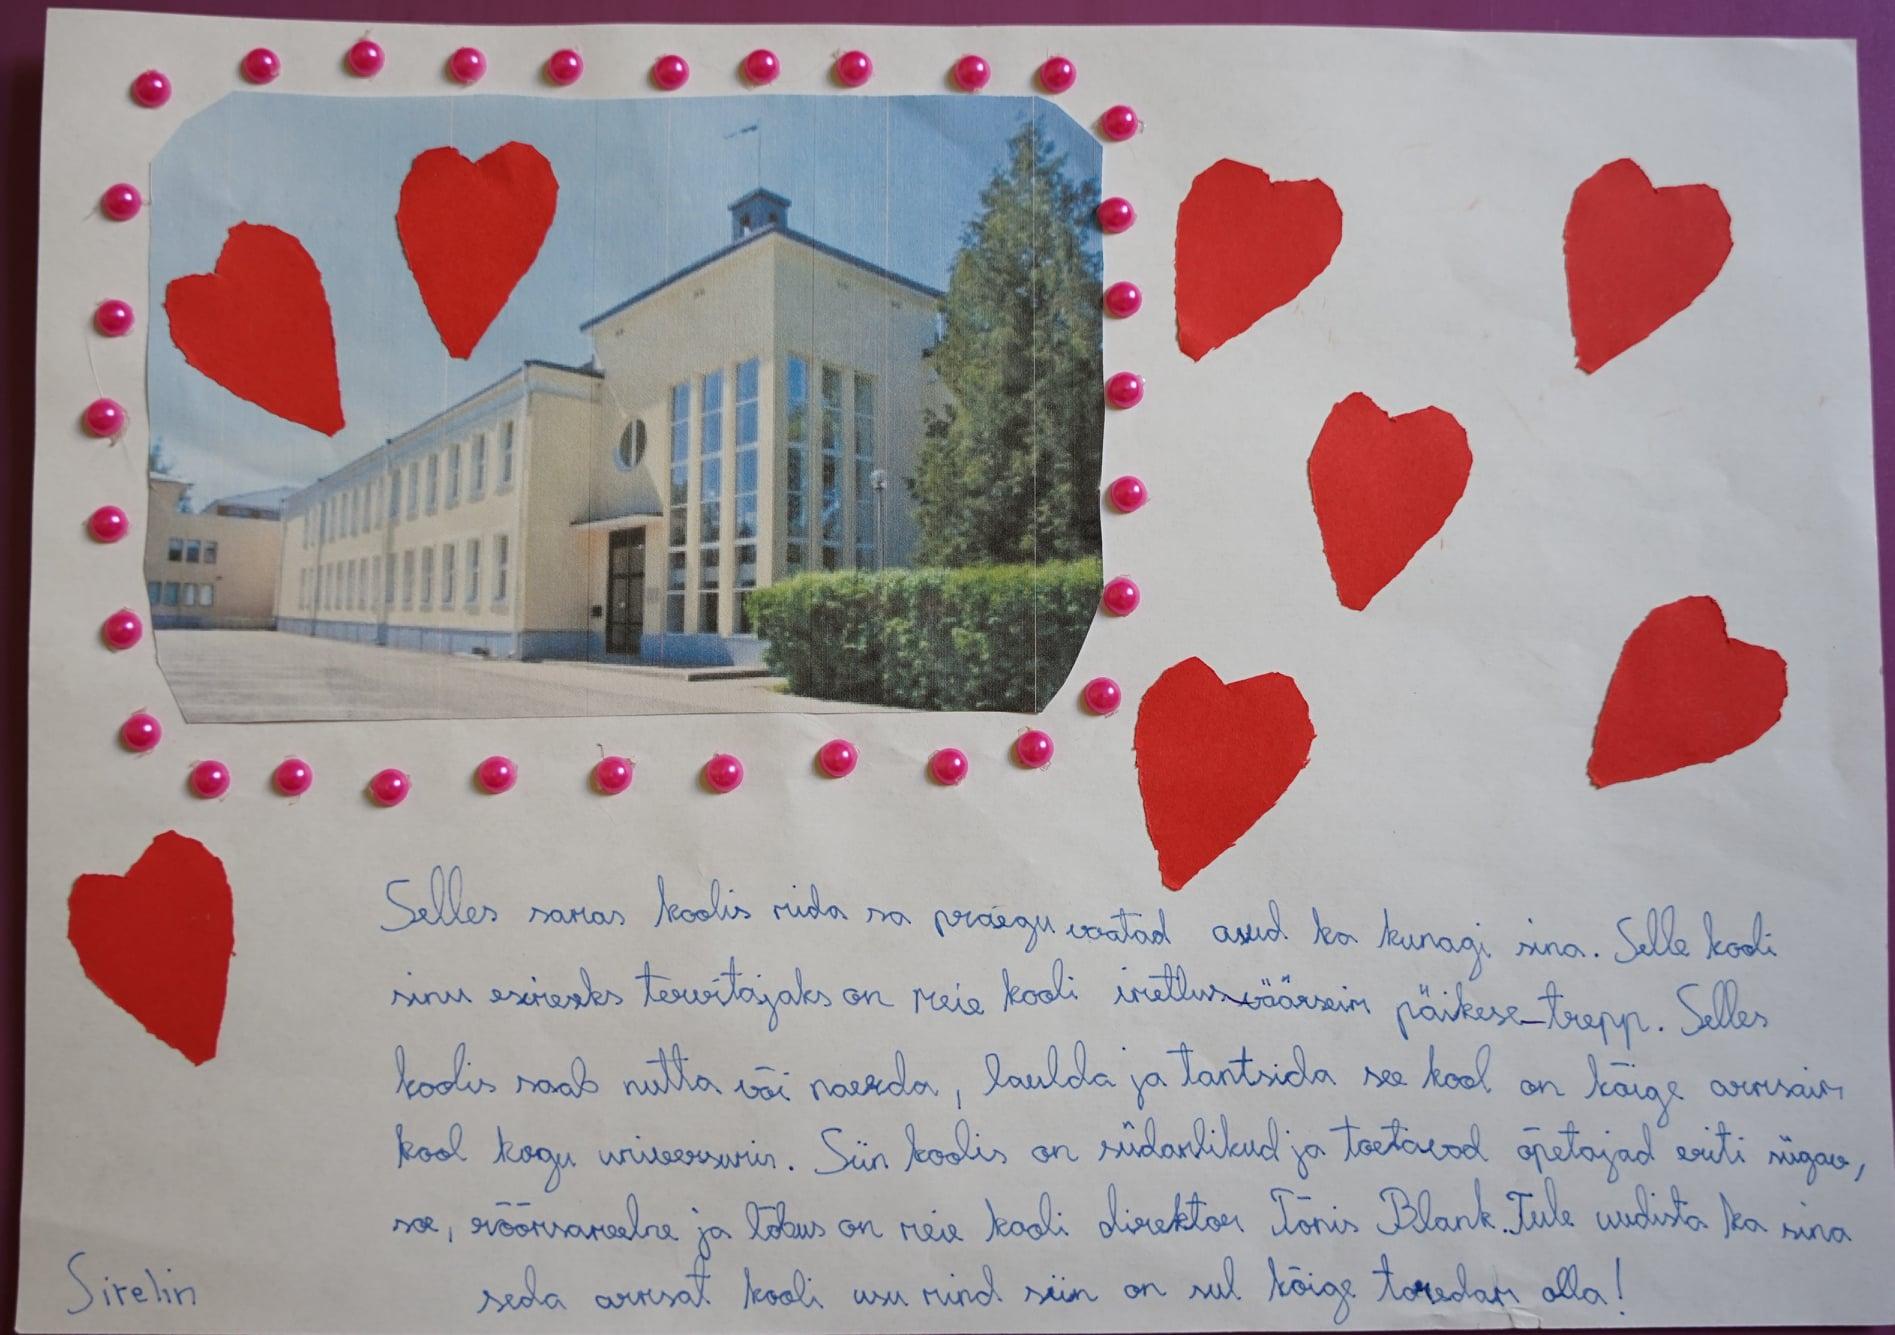 Selles samas koolis mida sa praegu vaatad asud ka kunagi sina. Selle kooli
sinu esimeseks tervitajaks on meie kooli imetlusväärseim päikese-trepp. Selles
koolis saab nutta või naerda, laulda ja tantsida see kool on kõige armsaim
kool kogu universumis. Siin koolis on südamlikud ja toetavad õpetajad eriti sügav,
soe, rõõmsameelne ja lõbus on meie kooli direktor Tõnis Blank. Tule uudista ka sina
seda armsat kooli usu mind siin on sul kõige toredam olla!
Sirelin